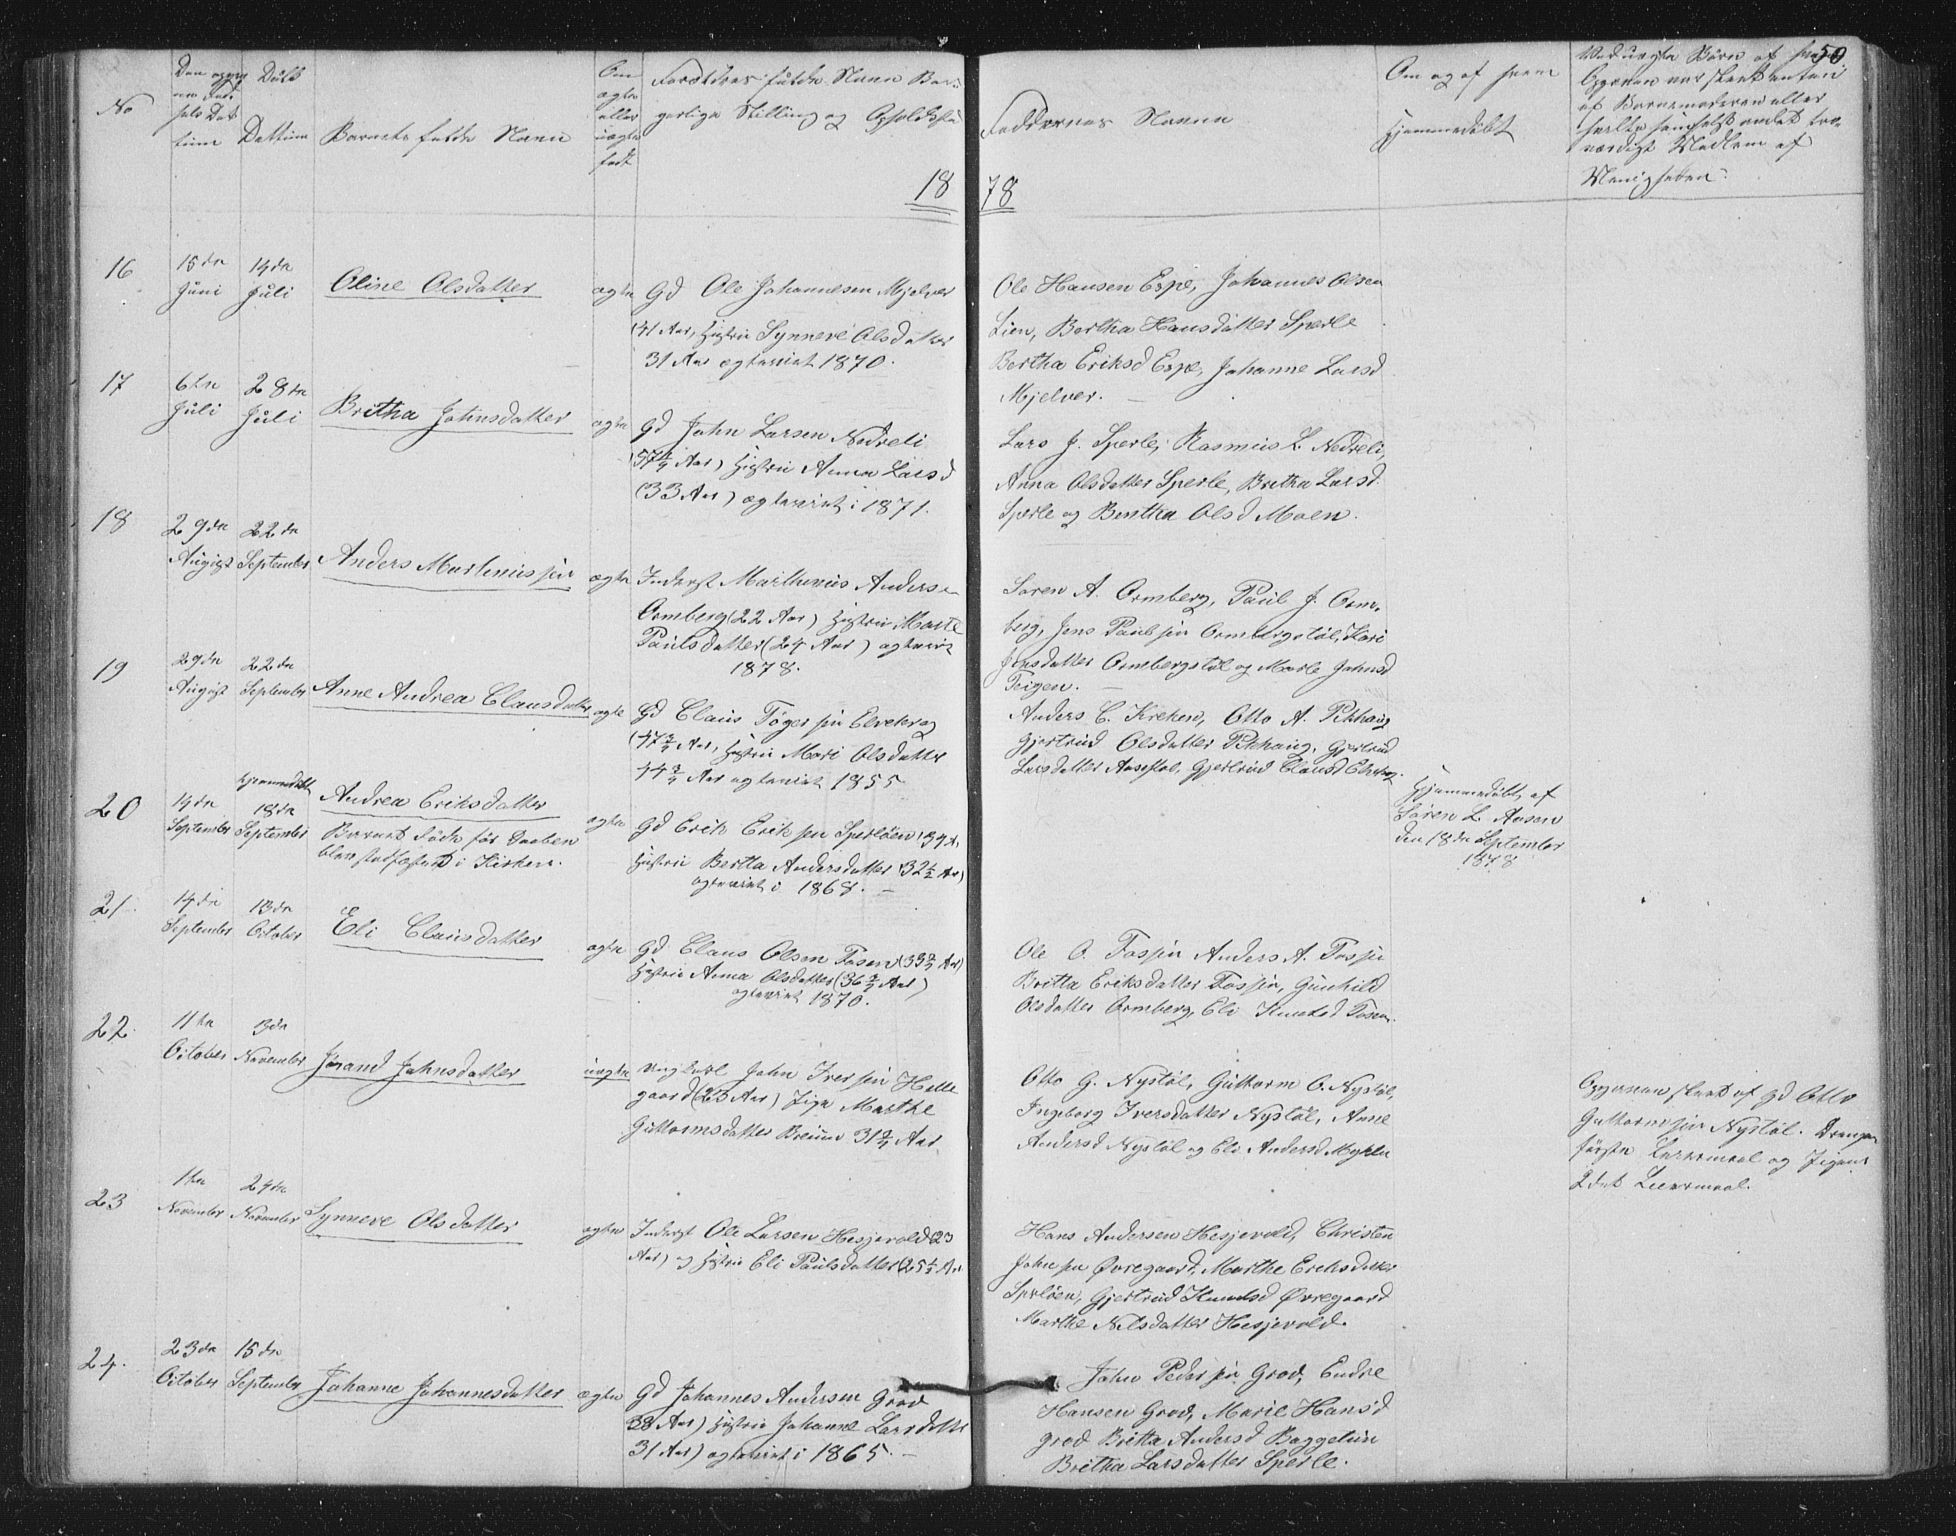 50
No
Døbt
Dattum
Barnets fulde Navn
Om
ægte
eller
uægte
født
Forældres fulde Navn Bor-
gerlige Stilling og
Faddernes Navne
Om og af hvem
hjemmedøbt
Ved uægte Børn af hvem
Opgaven er skeet enten
af Barnemoderen eller
Medlem af
Menigheden.
18 78
16
15de Juni
14de Juli
Oline Olsdatter
ægte
Gd Ole Johannesen Mjelver
(41 Aar, Hustru Synneve Olsdatter
31 Aar ægteviet 1870.
Ole Hansen Espe, Johannes Olsen
Lien, Bertha Hansdatter Sperle
Bertha Eriksd Espe, Johanne Larsd
Mjelver.
17
6te Juli
28de Juli
Britha Johnsdatter
ægte
Gd John Larsen Nedreli
Aar) Hustru Anna Larsd
(33 Aar) ægteviet i 1871.
Lars J. Sperle, Rasmus L. Nedreli,
Anna Olsdatter Sperle, Britha Larsd
Sperle og Bentha Olsd Moen.
18
29de August
22de September
Anders Marthinussen
ægte
Inderst Marthinus Anders
Ormberg (22 Aar) Hustru Marte
Paulsdatter (24 Aar) ægteviet
1878.
Søren A. Ormberg, Paul J. Orm-
berg, Jens Paulsen Ormbergstøl, Kari
Jensdatter Ormbergstøl og Marte Johnsd
Teigen.
19
29de August
22de September
Anne Andrea Clausdatter
ægte
Gd Claus Tøgersen Elvekrog
Aar, Hustru Mari Olsdatter
Aar ægteviet 1855
Anders C. Kreken, Otto A. Pikhaug
Gjertrud Olsdatter Pikhaug, Gjertrud
Larsdatter Gjertrud Clausd
20
14de September
hjemmedøbt
18de September
Andrea Eriksdatter
Barnet døde før Daaben
blev stadfæstet i Kirken.
ægte
Gd Erik Eriksen Sperløen
Hustru Bertha Andersdatter (32½ Aar)
ægteviet i 1868.
Hjemmedøbt af
Søren L. Aasen
den 18de September
1878
21
14de September
13de October
Eli Clausdatter
ægte
Gd Claus Olsen Fosen
Hustru Anna Olsdatter
ægteviet 1870.
Ole O. Fossen Anders A. Fossen
Britta Eriksdatter Fossen, Gunhild
Olsdatter Ormberg, Eli Knutsd Fosen.
22
11te October
3de November
Jørand Johnsdatter
uægte
Ungkarl John Iversen Helle
gaard (25 Aar) Pige Marthe
Guttormsdatter Breum
Otto G. Nystøl, Guttorm O. Nystøl,
Ingeborg Iversdatter Nystøl, Anne
Andersd Nystøl og Eli Andersd Myklen
Opgaven skeet af Gd Otto
Guttormsen Nystøl. Drengens
første Leiermaal og Pigens
2det Leiermaal.
23
1te November
24de November
Synneve Olsdatter
ægte
Inderst Ole Larsen Hesjevold (23
Aar) og Hustru Eli Paulsdatter
Hans Andersen Hesjevold, Christen
Johnsen Øvregaard, Marthe Eriksdatter
Sperløen, Gjertrud Knudsd Øvregaard
Marthe Nilsdatter Hesjevold.
24.
23de October
15de September
Johanne Johannesdatter
ægte
Gd Johannes Andersen Grod
38 Aar) Hustru Johanne Larsdatter
31 Aar) ægteviet i 1865.
John Pedersen Grod, Endre
Hansen Grod, Marie Hansd
Grod Britta Andersd Baggetun
Britha Larsdatter Sperle.